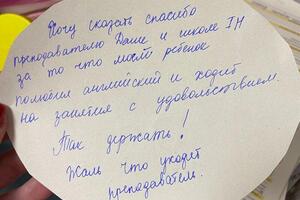 Хочу сказать спасибо
преподавателю Даше и школе IH
за то что мой ребенок
полюбил английский и ходит
на занятия с удовольствием.
Так держать!
Жаль что уходит
преподаватель.